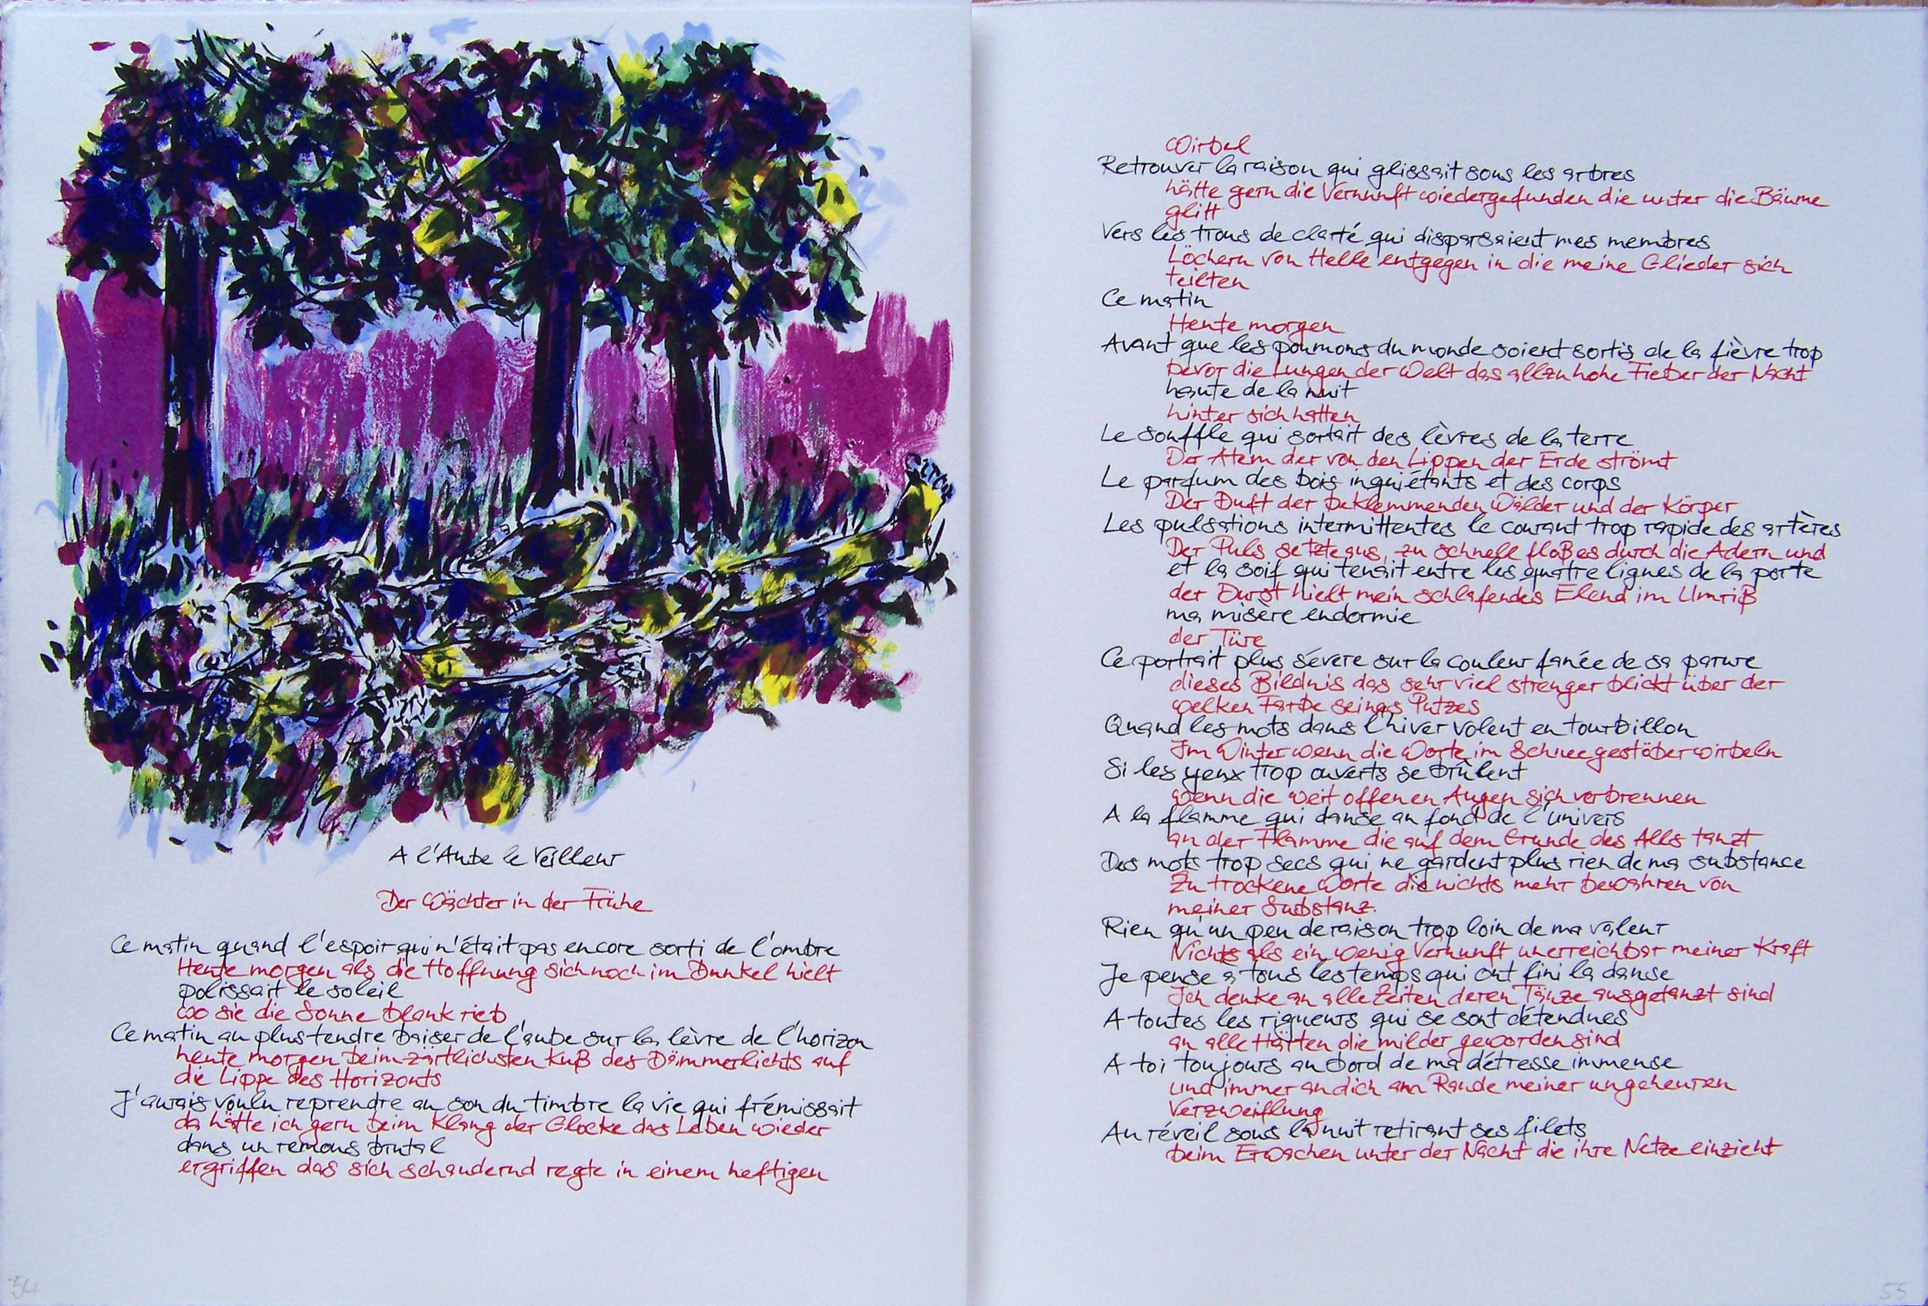 A l'Aube le Veilleur
Der Wächter in der Frühe
Ce matin quand l'espoir qui n'était pas encore sorti de l'ombre
Heute morgen als die Hoffnung sich noch im Dunkel hielt
polissait le soleil
wo sie die Sonne blank rieb
Ce matin au plus tendre baiser de l'aube sur la lèvre de l'horizon
heute morgen beim zärtlichsten Kuß des Dämmerlichts auf
die Lippe des Horizonts
J'aurais voulu reprendre au son du timbre la vie qui frémissait
da hätte ich gern beim Klang der Glocke das Leben wieder
dans un remous brutal
ergriffen das sich schaudernd regte in einem heftigen
54
Wirbel
Retrouver la raison qui glissait sous les arbres
hätte gern die Vernunft wiedergefunden die unter die Bäume
glitt
Vers les trous de clarté qui disparsaient mes membres
Löchern von Helle entgegen in die meine Glieder sich
teilten
Ce matin
Heute morgen
Avant que les poumons du monde soient sortis de la fièvre trop
bevor die Lungen der Welt das allzu hohe Fieber der Nacht
haute de la nuit
hinter sich hatten
Le souffle qui sortait des lèvres de la terre
Der Atem der von den Lippen der Erde strömt
Le parfum des bois inquiétants et des corps
Der Duft der beklemmenden Wälder und der Körper
Les pulsations intermittentes le courant trop rapide des artères
Der Puls setzte aus, zu schnell floß es durch die Adern und
et la soif qui tenait entre les quatre lignes de la porte
der Durst hielt mein schlafendes Elend im Umriß
ma misère endormie
der Türe
Ce portrait plus sévère sur la couleur fanée de sa parure
dieses Bildnis das sehr viel strenger blickt über der
welken Farbe seines Putzes
Quand les mots dans l'hiver volent en tourbillon
Im Winter wenn die Worte im Schneegestöber wirbeln
Si les yeux trop ouverts se brûlent
wenn die weit offenen Augen sich verbrennen
A la flamme qui danse au fond de l'univers
an der Flamme die auf dem Grunde des Alls tanzt
Des mots trop secs qui ne gardent plus rien de ma substance
Zu trockene Worte die nichts mehr bewahren von
meiner Substanz.
Rien qu'un peu de raison trop loin de ma valeur
Nichts als ein wenig Vernunft unerreichbar meiner Kraft
Je pense à tous les temps qui ont fini la danse
Ich denke an alle Zeiten deren Tänze ausgetanzt sind
A toutes les rigueurs qui se sont détendues
an alle Härten die milder geworden sind
A toi toujours au bord de ma détresse immense
und immer an dich am Rande meiner ungeheuren
Verzweiflung
Au réveil sous la nuit retirant ses filets
beim Erwachen unter der Nacht die ihre Netze einzieht
55